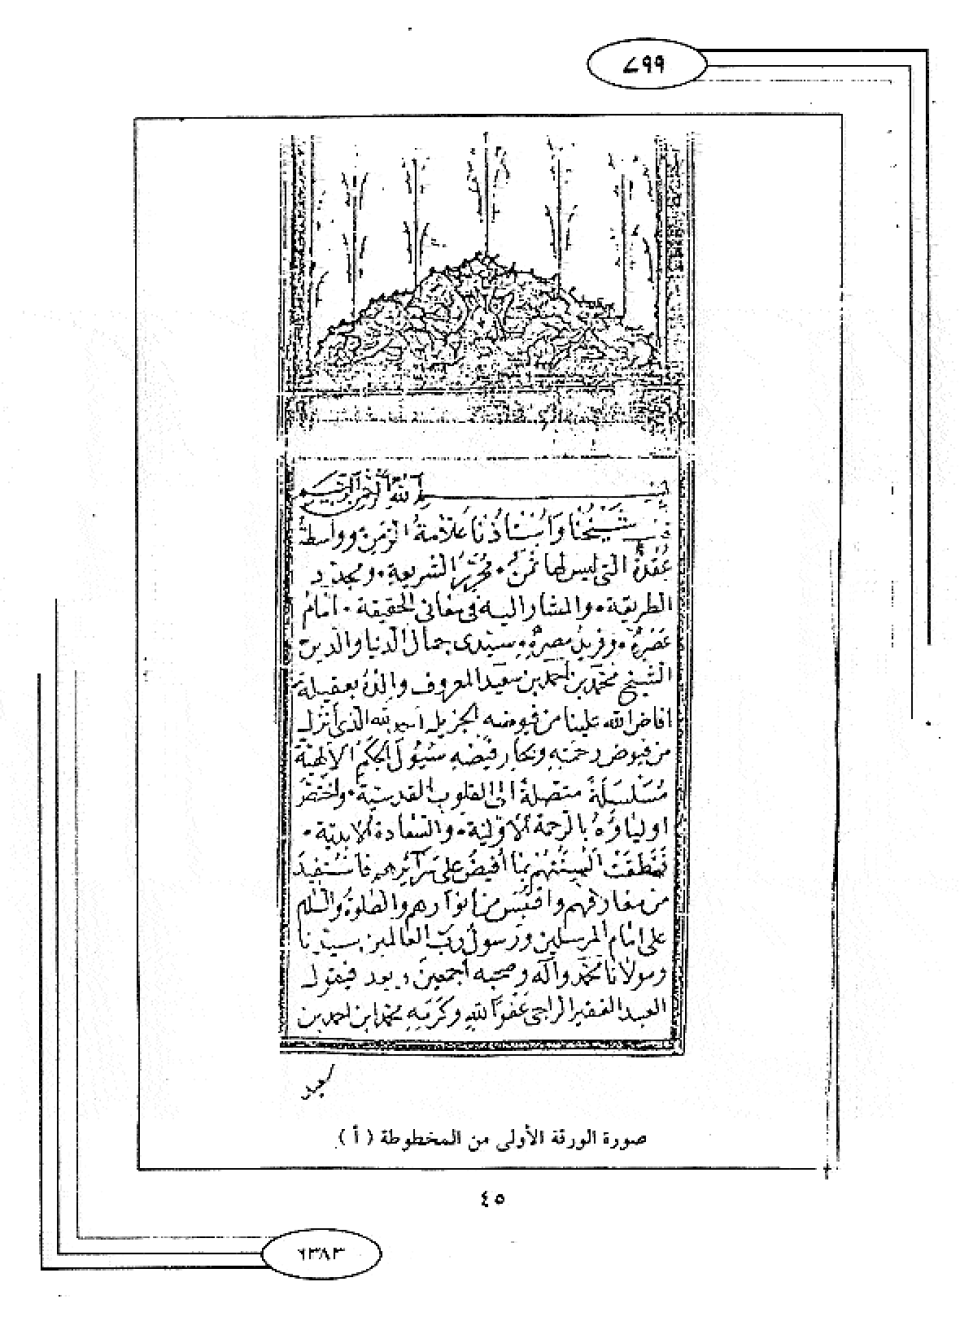 ٧٩٩
بسم الله الرحمن الرحيم
شيخنا وأستاذنا علامة الزمن وواسطة
عقده التي ليس لها ثمن. محرر الشريعة. ومجدد
الطريقة. والمشار اليه في معاني الحقيقة. امام
عصره. وفريد مصره. سيدي جمال الدنيا والدين
الشيخ محمد بن احمد بن سعيد المعروف والده بعقيلة
افاض الله علينا من فيوضه الجزيلة الذي أنزل
من فيوض رحمته وبحار فيضه سيول الحكم الالهية
مسلسلة متصلة الى القلوب القدسية. واختص
اولياؤه بالرحمة الاولية. والسعادة الابدية.
فنطقت ألسنتهم بما أفيض على سرائرهم فاستفيد
من معارفهم واقتبس من أنوارهم والصلوة والسلم
على امام المرسلين ورسول رب العالمين سيدنا
ومولانا محمد وآله وصحبه أجمعين وبعد فيقول
العبد الفقير الراجي عفو الله وكرمه محمد ابن احمد بن
سعيد
صورة الورقة الأولى من المخطوطة (أ).
٤٥
١٣٨٣